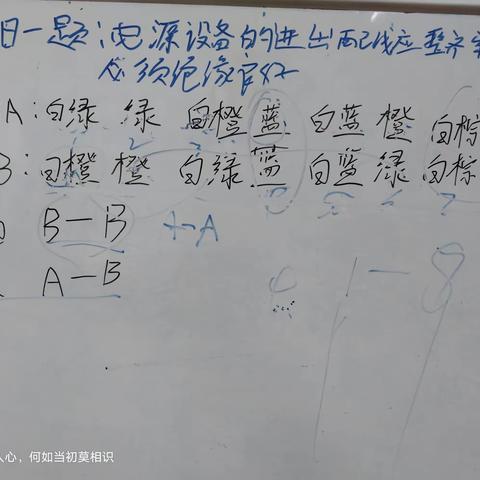 日一题：电源设备的进出配线应整齐
必须绝缘良好
A：白绿 绿 白橙 蓝 白蓝 橙 白棕
B：白橙 橙 白绿 蓝 白蓝 绿 白棕
B—B A—A
A—B
1—8
人心，何如当初莫相识